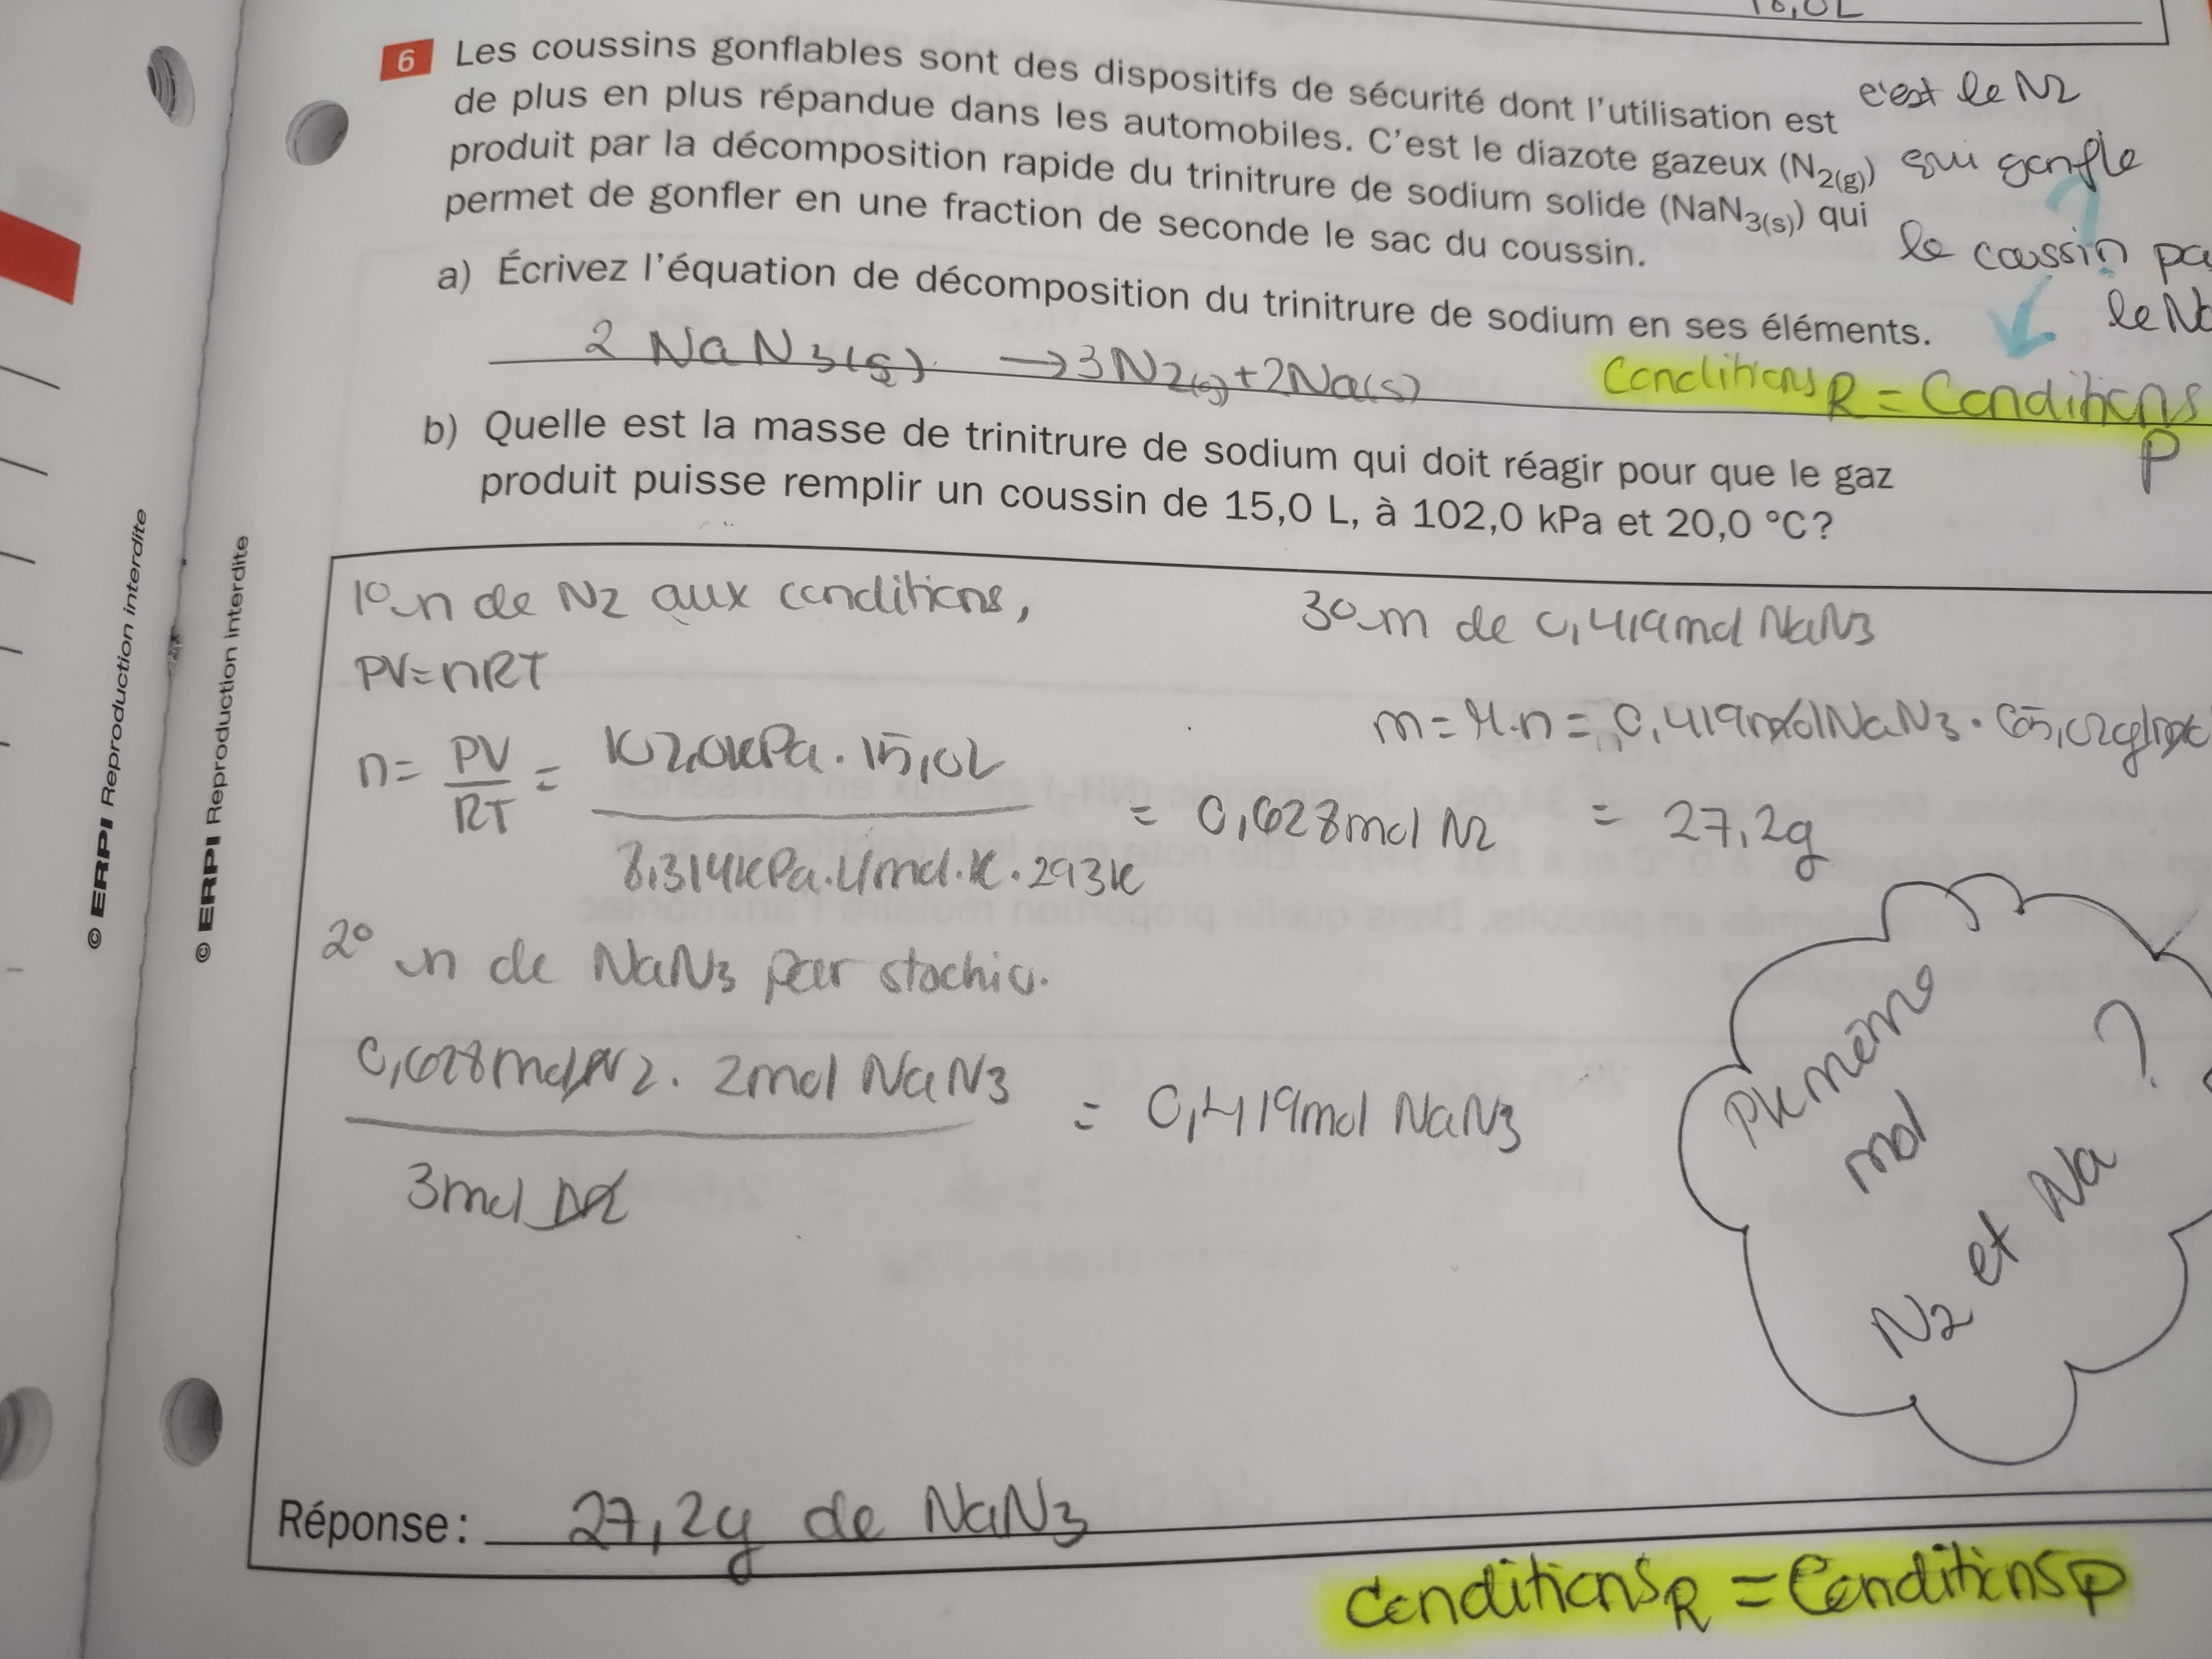 6 Les coussins gonflables sont des dispositifs de sécurité dont l'utilisation est
de plus en plus répandue dans les automobiles. C'est le diazote gazeux (N2(g))
produit par la décomposition rapide du trinitrure de sodium solide (NaN3(s)) qui
permet de gonfler en une fraction de seconde le sac du coussin.
c'est le N2
qui gonfle
le coussin pa
a) Écrivez l'équation de décomposition du trinitrure de sodium en ses éléments.
2 NaN3(s) → 3N2(g) + 2Na(s)
Conditions R = Conditions
P
b) Quelle est la masse de trinitrure de sodium qui doit réagir pour que le gaz
produit puisse remplir un coussin de 15,0 L, à 102,0 kPa et 20,0 °C?
1° n de N2 aux conditions,
PV=nRT
n= PV/RT = 102,0kPa · 15,0L
8,314kPa·L/mol·K · 293K
= 0,628mol N2
2° n de NaN3 par stochio.
0,628mol N2 · 2mol NaN3
3mol N2
= 0,419mol NaN3
3° m de 0,419mol NaN3
m = M·n = 0,419molNaN3 · 65,02g/mol
= 27,2g
même
mol
N2 et Na ?
Réponse: 27,2g de NaN3
Conditions R = Conditions P
© ERPI Reproduction interdite
© ERPI Reproduction interdite